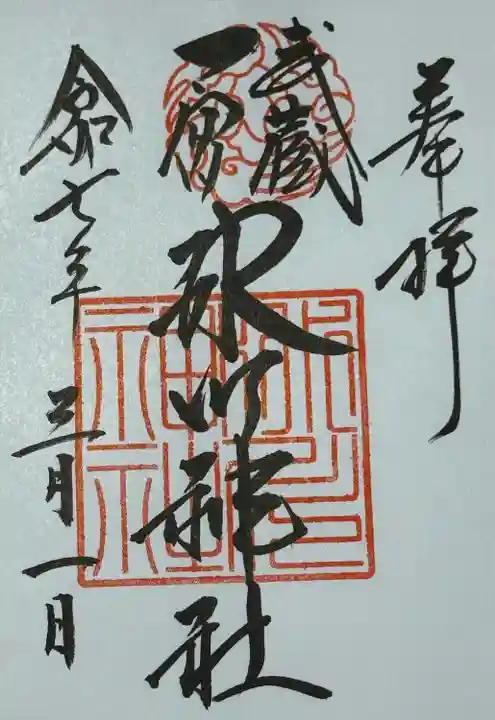 奉拝
武蔵
一宮
氷川神社
令和七年 三月一日
氷川神社